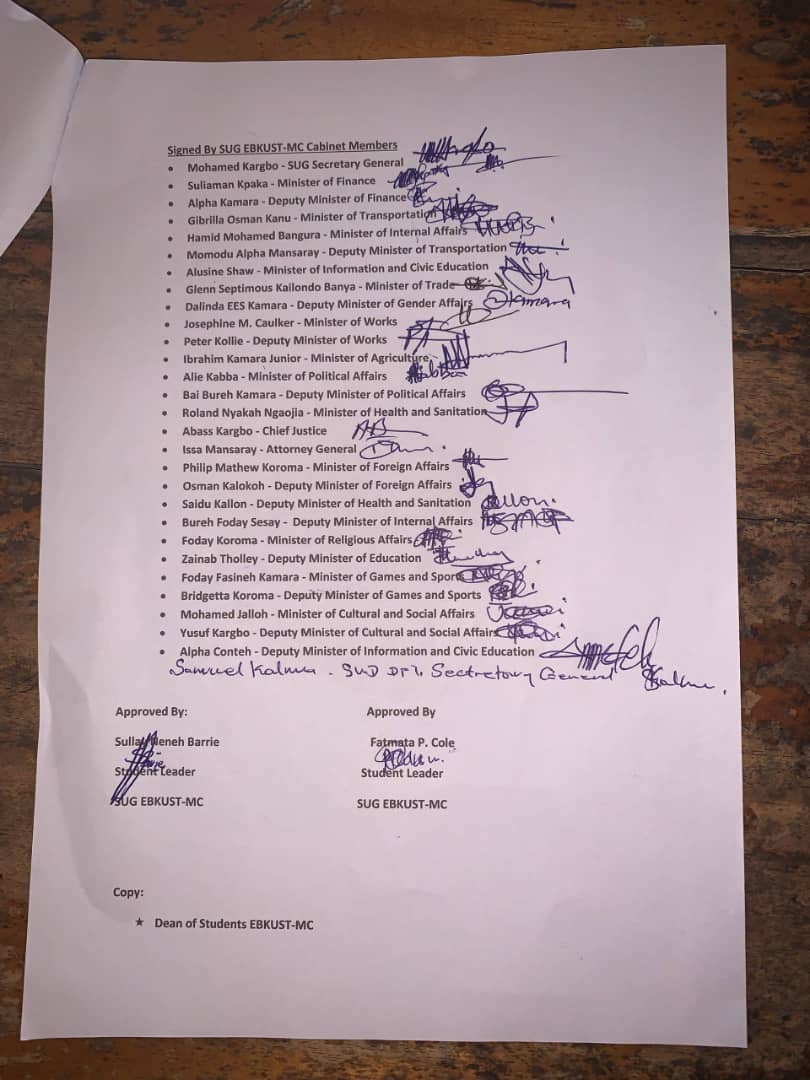 Signed By SUG EBKUST-MC Cabinet Members
• Mohamed Kargbo - SUG Secretary General
• Suliaman Kpaka - Minister of Finance
• Alpha Kamara - Deputy Minister of Finance
• Gibrilla Osman Kanu - Minister of Transportation
• Hamid Mohamed Bangura - Minister of Internal Affairs
• Momodu Alpha Mansaray - Deputy Minister of Transportation
• Alusine Shaw - Minister of Information and Civic Education
• Glenn Septimous Kailondo Banya - Minister of Trade
• Dalinda EES Kamara - Deputy Minister of Gender Affairs Kamara
• Josephine M. Caulker - Minister of Works
• Peter Kollie - Deputy Minister of Works
• Ibrahim Kamara Junior - Minister of Agriculture
• Alie Kabba - Minister of Political Affairs
• Bai Bureh Kamara - Deputy Minister of Political Affairs
• Roland Nyakah Ngaojia - Minister of Health and Sanitation
• Abass Kargbo - Chief Justice
• Issa Mansaray - Attorney General
• Philip Mathew Koroma - Minister of Foreign Affairs
• Osman Kalokoh - Deputy Minister of Foreign Affairs
• Saidu Kallon - Deputy Minister of Health and Sanitation Kallon
• Bureh Foday Sesay - Deputy Minister of Internal Affairs
• Foday Koroma - Minister of Religious Affairs
• Zainab Tholley - Deputy Minister of Education
• Foday Fasineh Kamara - Minister of Games and Sports
• Bridgetta Koroma - Deputy Minister of Games and Sports
• Mohamed Jalloh - Minister of Cultural and Social Affairs
• Yusuf Kargbo - Deputy Minister of Cultural and Social Affairs
• Alpha Conteh - Deputy Minister of Information and Civic Education
Samuel Kalma . General
Approved By: Approved By
Barrie Fatmata P. Cole
Student Leader Student Leader
SUG EBKUST-MC SUG EBKUST-MC
Copy:
★ Dean of Students EBKUST-MC